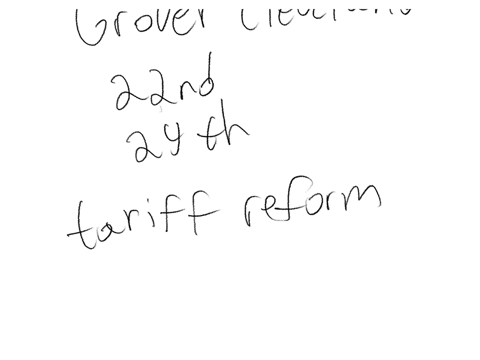 Grover Cleveland
22nd
24th
tariff reform